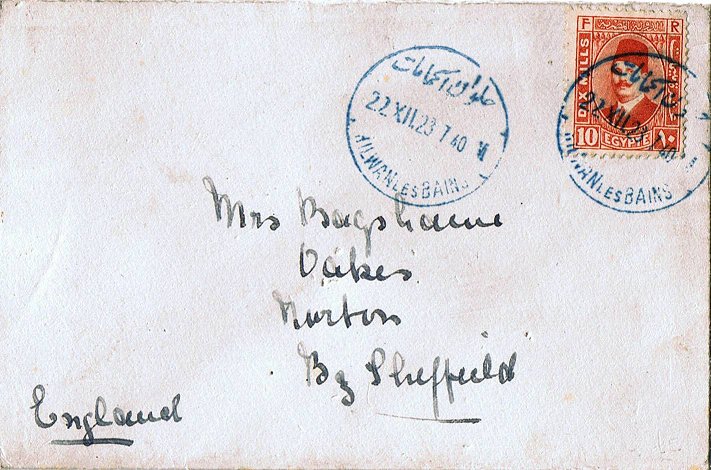 حلوان الحمامات
22.XII.23 7 40
HILWAN LES BAINS
F R
DIX MILLS
10 EGYPTE ١٠
حلوان الحمامات
22.XII.23 7 40
HILWAN LES BAINS
Mrs Bagshawe
Oakes
Norton
By Sheffield
England